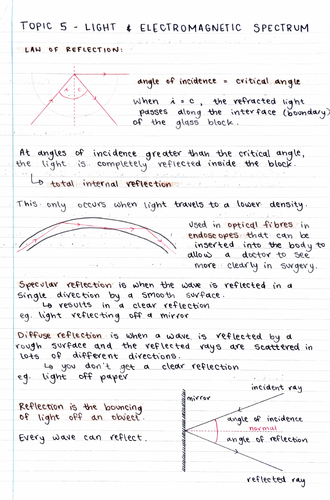 TOPIC 5 - LIGHT & ELECTROMAGNETIC SPECTRUM
LAW OF REFLECTION:
A C
angle of incidence = critical angle
When i = c, the refracted light
passes along the interface (boundary)
of the glass block.
At angles of incidence greater than the critical angle,
the light is completely reflected inside the block.
↳ total internal reflection
This only occurs when light travels to a lower density.
Used in optical fibres in
endoscopes that can be
inserted into the body to
allow a doctor to see
more clearly in surgery.
Specular reflection is when the wave is reflected in a
single direction by a smooth surface.
↳ results in a clear reflection
eg. light reflecting off a mirror
Diffuse reflection is when a wave is reflected by a
rough surface and the reflected rays are scattered in
lots of different directions.
↳ you don't get a clear reflection
eg. light off paper
Reflection is the bouncing
of light off an object.
Every wave can reflect.
incident ray
mirror
angle of incidence
normal
angle of reflection
reflected ray